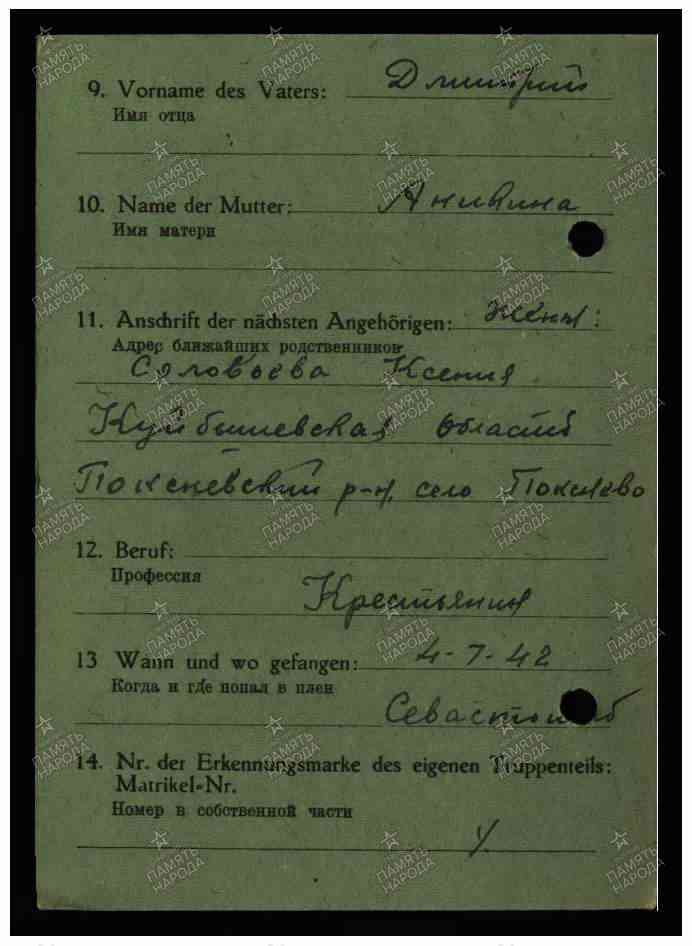 9. Vorname des Vaters: Дмитрий
Имя отца
10. Name der Mutter: Аникина
Имя матери
11. Anschrift der nächsten Angehörigen: жены:
Адрес ближайших родственников
Соловьева Ксения
Куйбышевская область
р-н, село
12. Beruf:
Профессия
Крестьянин
13 Wann und wo gefangen: 4-7-42
Когда и где попал в плен
Севастополь
14. Nr. der Erkennungsmarke des eigenen Truppenteils:
Matrikel-Nr.
Номер в собственной части